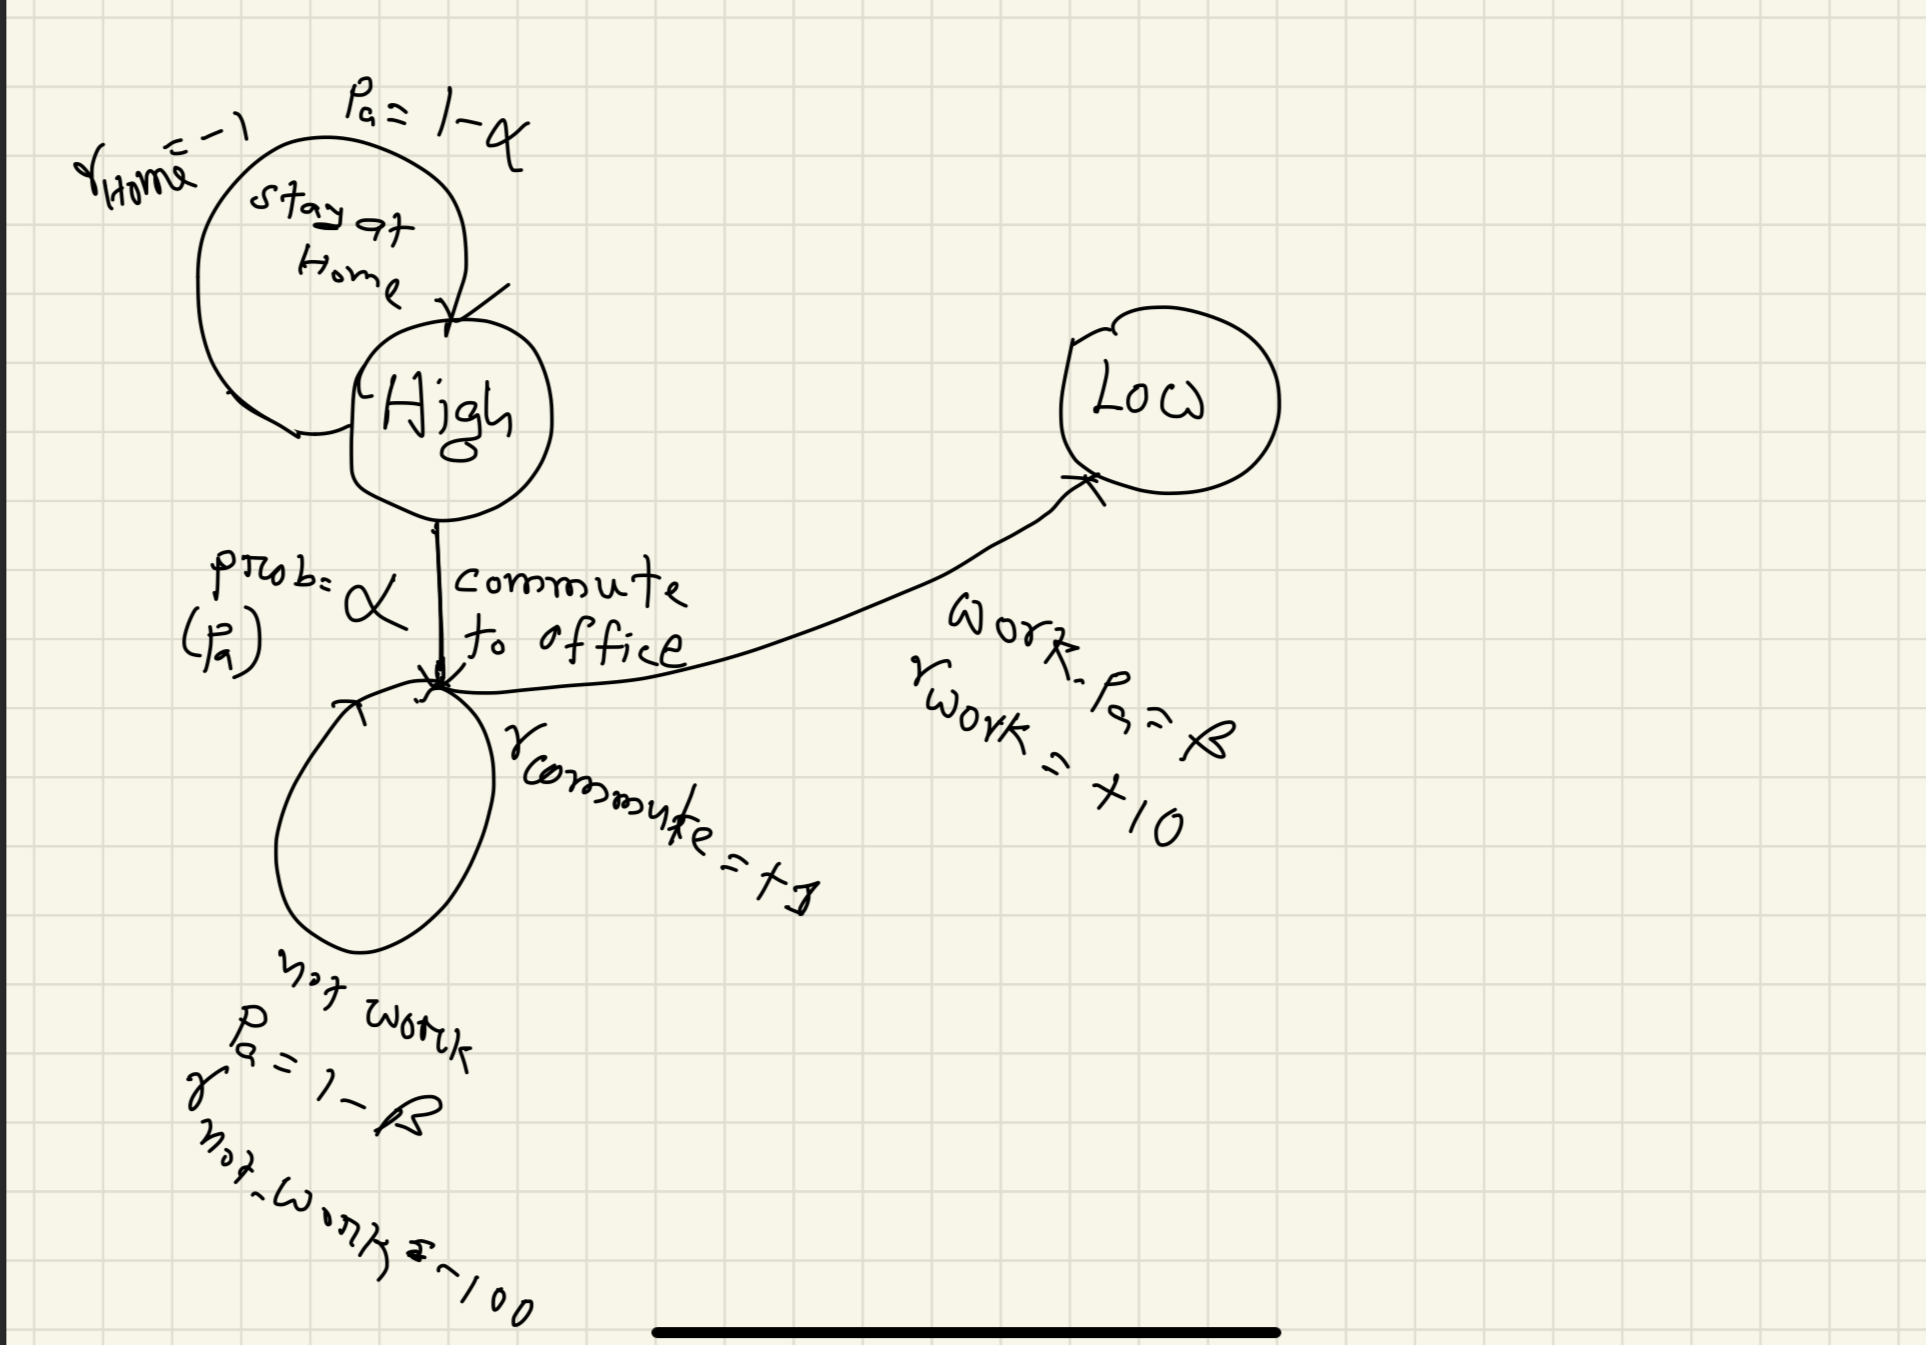 Pa = 1-α
rHome = -1
stay at
Home
High
Low
prob = α
(Pa)
commute
to office
work. Pa = β
rwork = +10
rcommute = +1
not work
Pa = 1-β
r not-work = -100